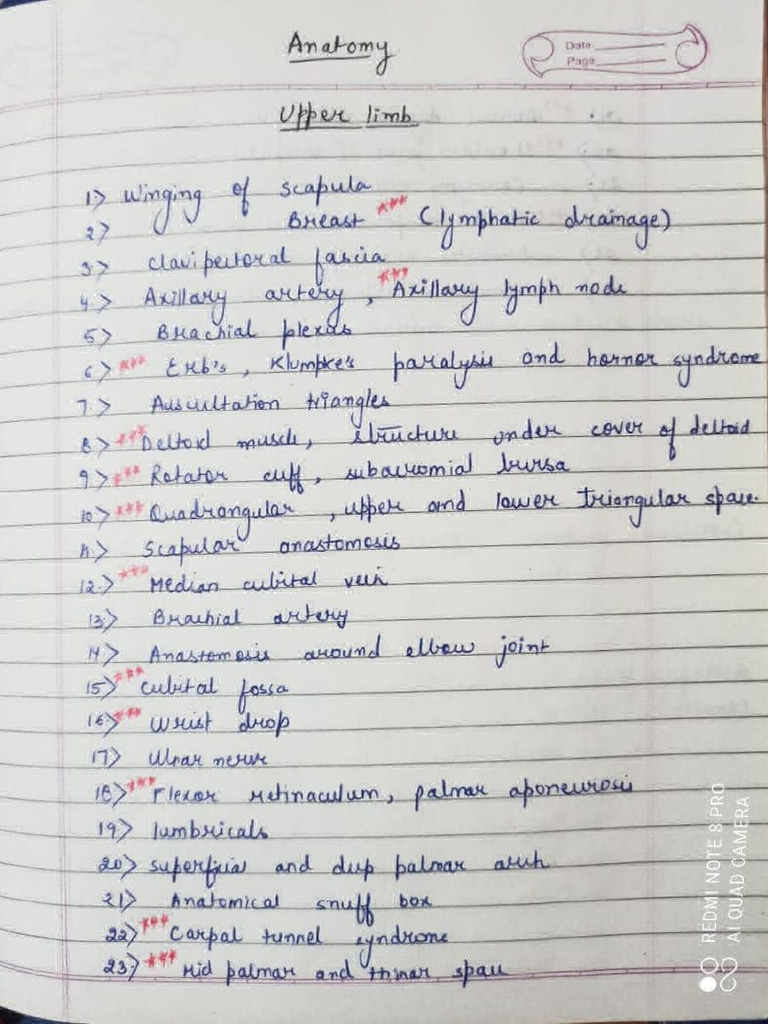 Anatomy
Date
Page
Upper limb
1.> Winging of scapula
2.> Breast *** (lymphatic drainage)
3.> Clavipectoral fascia
4.> Axillary artery, *** Axillary lymph node
5.> Brachial plexus
6.> *** Erb's, Klumpke's paralysis and hornor syndrome
7.> Auscultation triangles
8.> *** Deltoid muscle, structure under cover of deltoid
9.> *** Rotator cuff, subacromial bursa
10.> *** Quadrangular, upper and lower triangular space.
11.> Scapular anastomosis
12.> *** Median cubital vein
13.> Brachial artery
14.> Anastomosis around elbow joint
15.> *** Cubital fossa
16.> *** Wrist drop
17.> Ulnar nerve
18.> *** Flexor retinaculum, palmar aponeurosis
19.> lumbricals
20.> superficial and deep palmar arch
21.> Anatomical snuff box
22.> *** Carpal tunnel syndrome
23.> *** Mid palmar and thinar space
REDMI NOTE 8 PRO
AI QUAD CAMERA